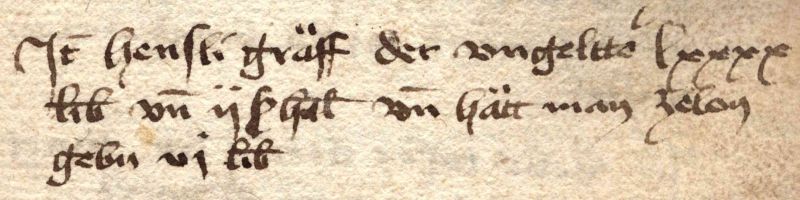 Jt hensli gräff der vngeltter lxxxx
lib vn̄ ij ß hal vn̄ hätt man zelon
gebn vj lib